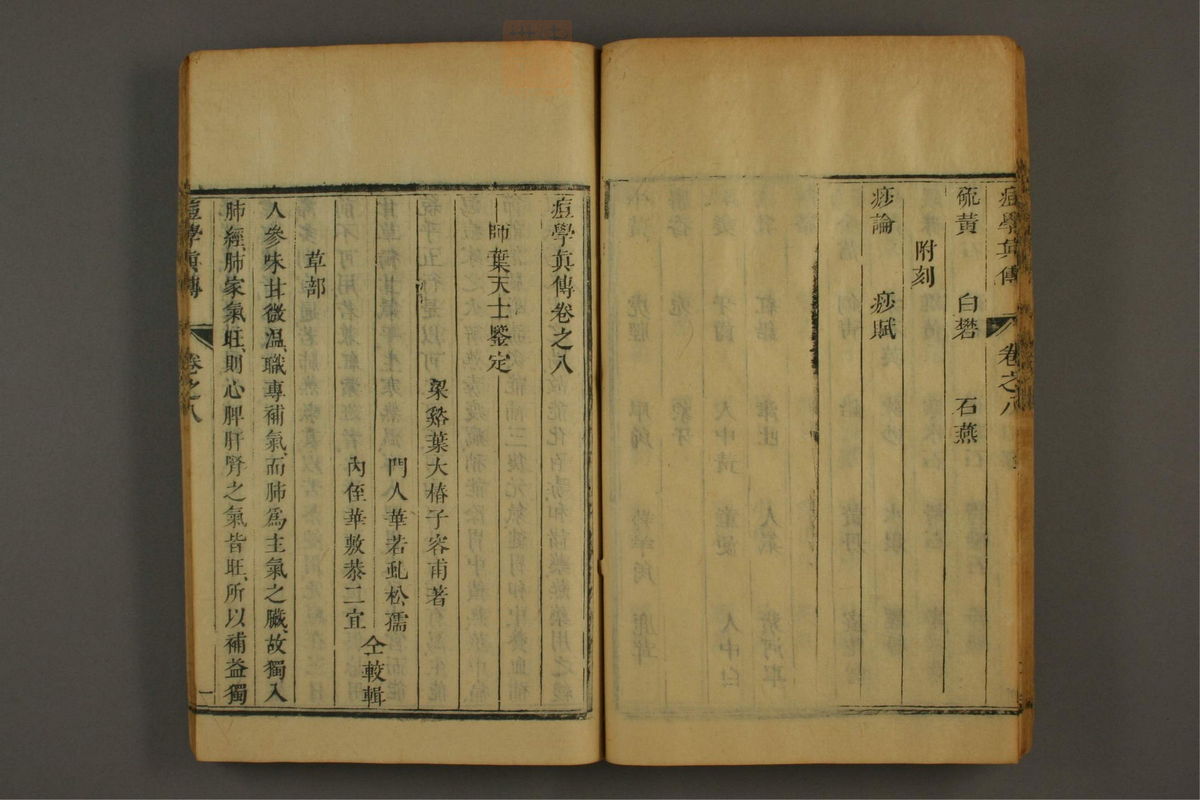 痘學真傳 卷之八
硫黃 白礬 石燕
附刻
痧論 痧賦
痘學真傳卷之八
師葉天士鑒定
梁谿葉大椿子容甫著
門人華若虬松孺
內侄華敷恭二宜
仝較輯
草部
人參味甘微溫、職專補氣、而肺爲主氣之臟、故獨入
肺經、肺家氣旺、則心脾肝腎之氣皆旺、所以補益獨
痘學真傳 卷之八 一